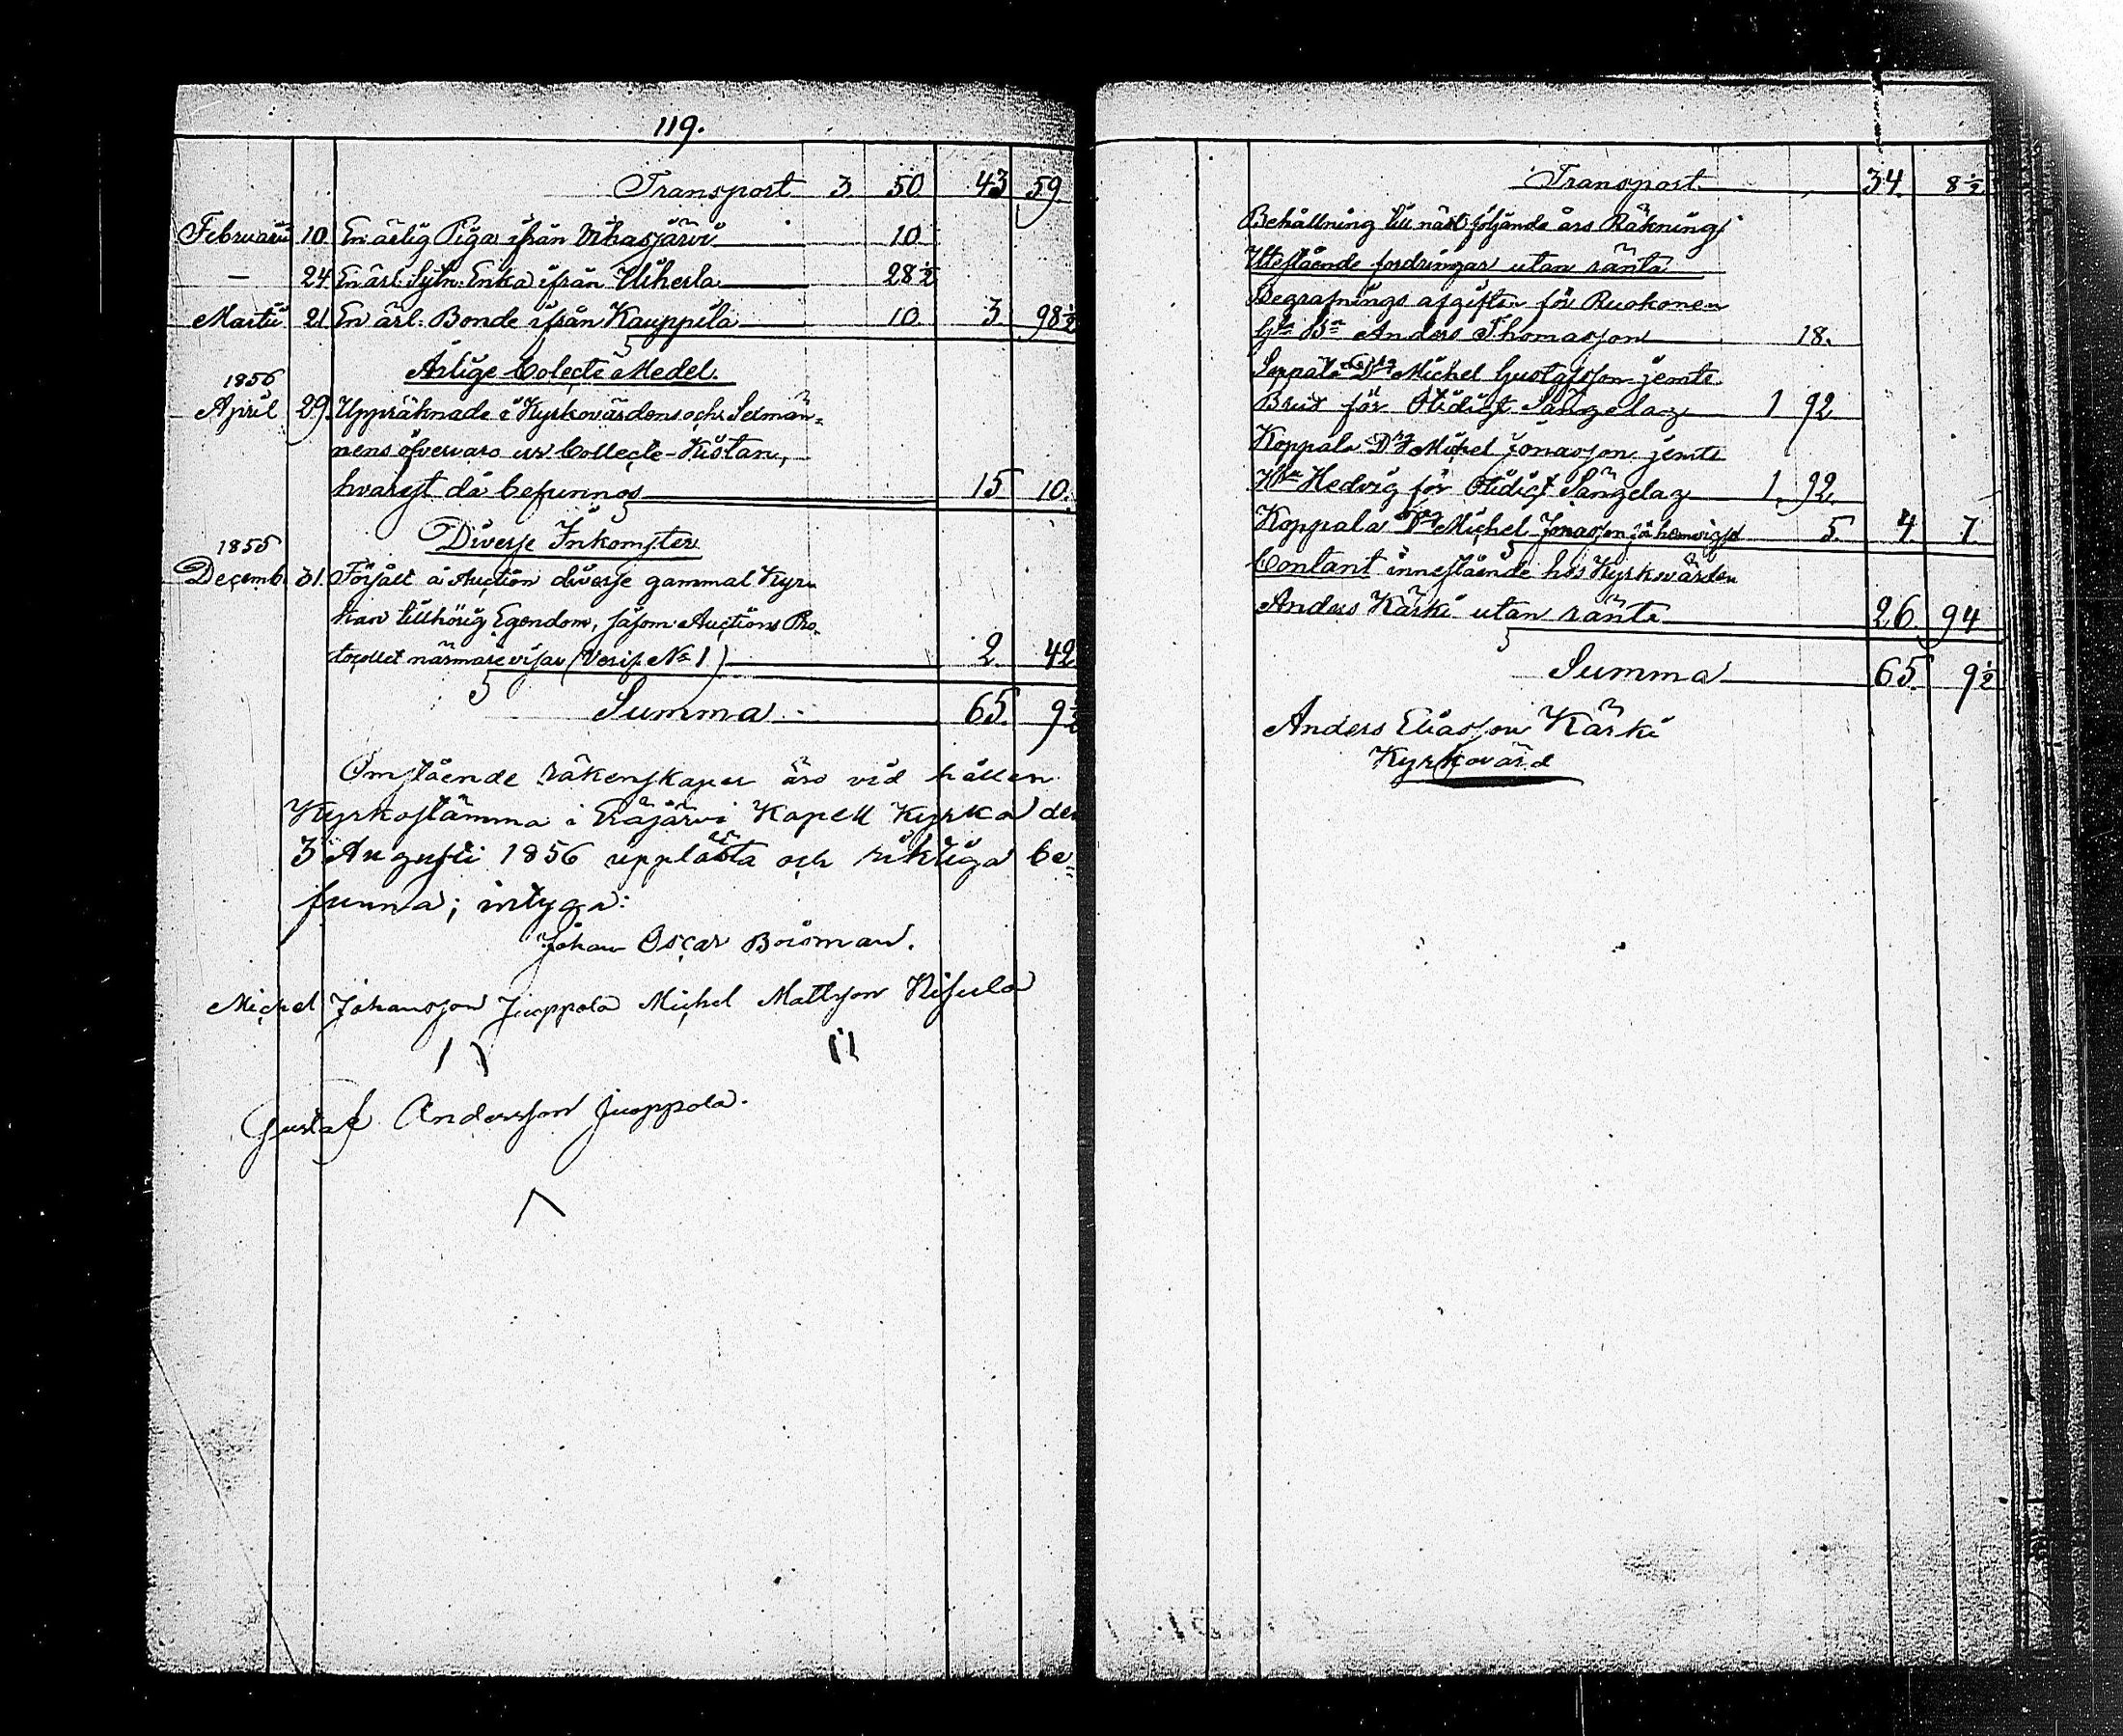 119.
Transport 3. 50 43 59.
Februarii 10 En ärlig Piga ifrån Vihasjärvi 10
— 24 En ärl. Sytn. Enka ifrån Uiherla 28 1/2
Martii 21 En ärl. Bonde ifrån Kauppila 10. 3. 98 1/2
Årlige Colecte Medel.
1856
April 29. Uppräknade i Kyrkovärdens och Sexmän-
nens öfvervaro ur Collecte-Kistan,
hvarest då befunnos 15 10.
Diverse Inkomster
1855
Decemb. 31. Försålt å Auction diverse gammal Kyr-
kan tillhörig Egendom, såsom Auctions Pro-
tocollet närmare visar (Verif. No 1) 2. 42
Summa 65. 9 1/2
Omstående räkenskaper äro vid hållen
Kyrkostämma i Eräjärvi Kapell Kyrka den
3 Augusti 1856 upplästa och riktiga be-
funna; intyga:
Johan Oscar Boisman.
Michel Johansson Juoppola Michel Mattsson Nisula
Gustaf Andersson Juoppola.
Transport 34. 8 1/2
Behållning till näst följande års Räkning
Utestående fordringar utan ränta
Begrafnings afgiften för Ruokonen
Anders Thomasson 18.
Seppälä Michel Gustafsson jemte
Brud för Olidigt Sängelag 1 92
Koppala Michel Jonasson jemte
Hedvig för Olidigt Sängelag 1. 92.
Koppala Michel Jonasson 5. 4 7.
Contant innestående hos Kyrkovärden
Anders Kärki utan ränta 26. 94
Summa 65. 9 1/2
Anders Eliasson Kärki
Kyrkovärd